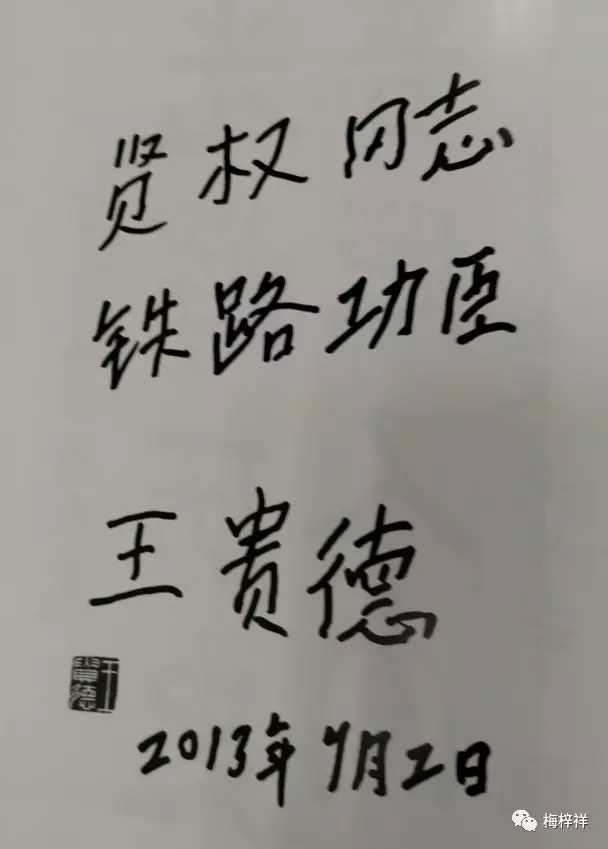 贤权同志
铁路功臣
王贵德
王贵德
2013年9月2日
梅梓祥